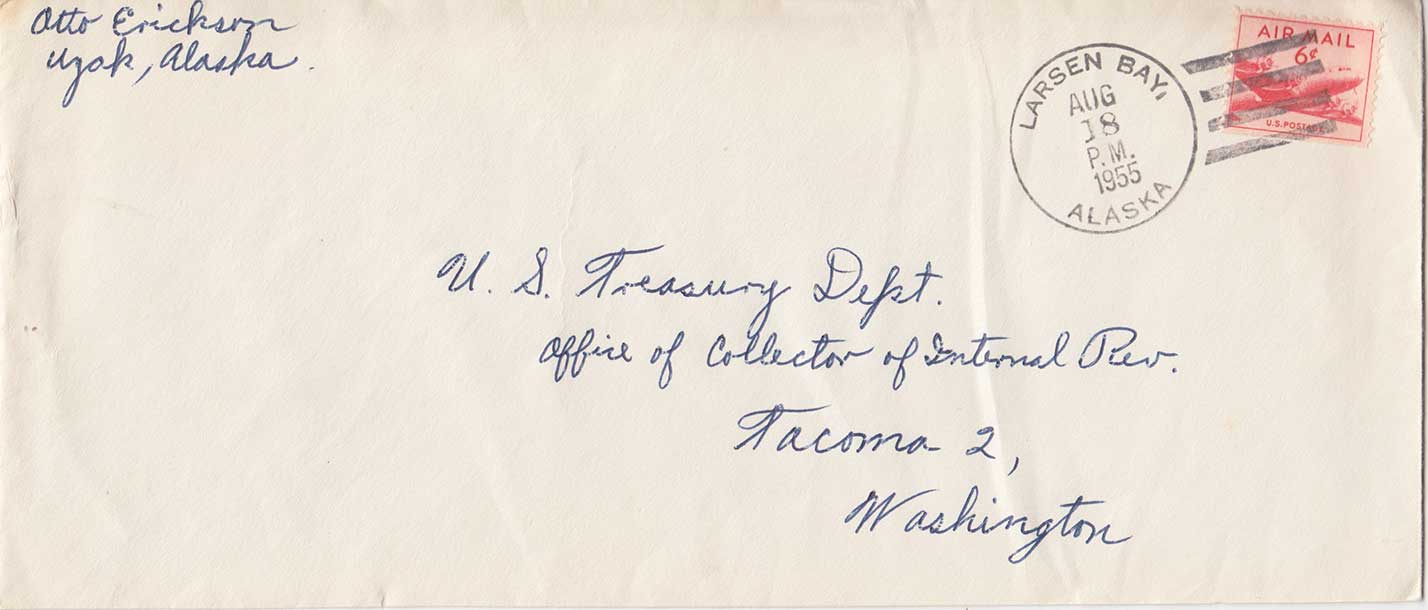 Otto Erickson
Uzak, Alaska.
LARSEN BAY,
AUG
18
P.M.
1955
ALASKA
AIR MAIL
6¢
U.S. POSTAGE
U. S. Treasury Dept.
Office of Collector of Internal Rev.
Tacoma 2,
Washington